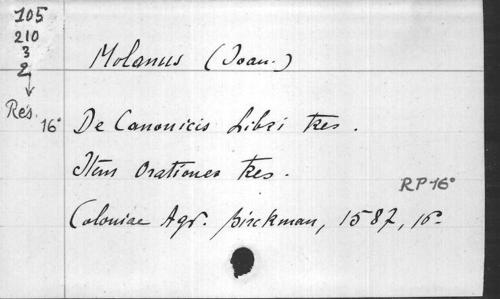 105
210
3
2
Res.
16°
Molanus (Joan.)
De Canonicis Libri tres.
Item Orationes tres.
RP-16°
Coloniae Agr. Birckman, 1587, 16°